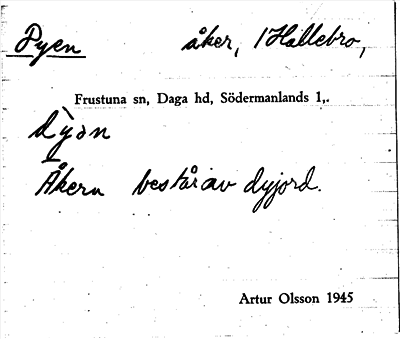 Dyen åker, 1 Hallebro,
Frustuna sn, Daga hd, Södermanlands l,.
dỳən
Åkern består av dyjord.
Artur Olsson 1945